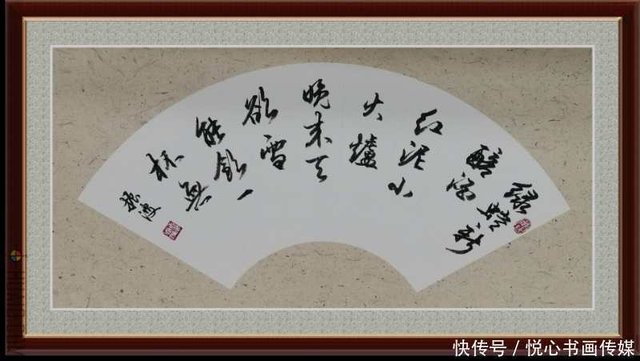 绿蟻新
醅酒
红泥小
火爐
晚来天
欲雪
能飲一
杯無
快传号 / 悦心书画传媒